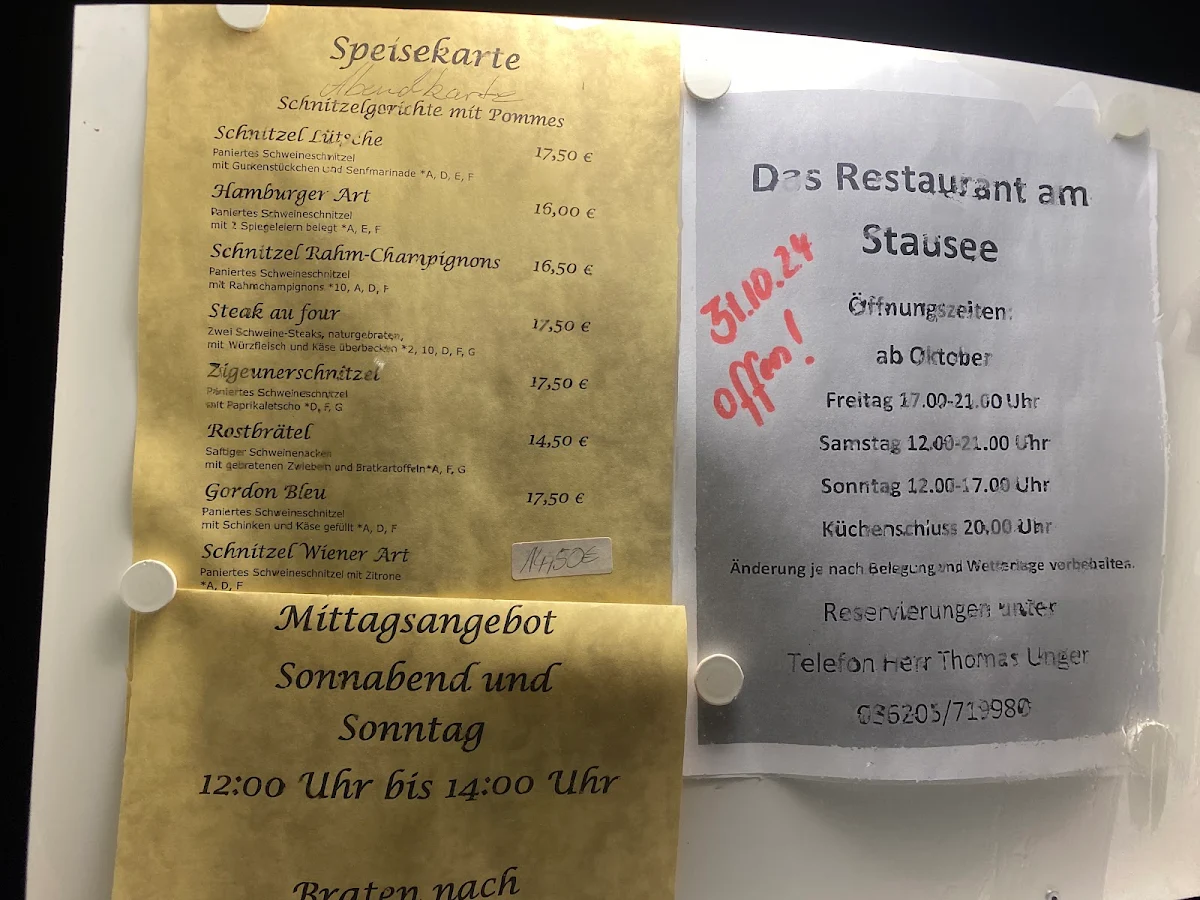 Speisekarte
Abendkarte
Schnitzelgerichte mit Pommes
Schnitzel Lütsche 17,50 €
Paniertes Schweineschnitzel
mit Gurkenstückchen und Senfmarinade *A, D, E, F
Hamburger Art 16,00 €
Paniertes Schweineschnitzel
mit 2 Spiegeleiern belegt *A, E, F
Schnitzel Rahm-Champignons 16,50 €
Paniertes Schweineschnitzel
mit Rahmchampignons *10, A, D, F
Steak au four 17,50 €
Zwei Schweine-Steaks, naturgebraten,
mit Würzfleisch und Käse überbacken *2, 10, D, F, G
Zigeunerschnitzel 17,50 €
Paniertes Schweineschnitzel
mit Paprikaletscho *D, F, G
Rostbrätel 14,50 €
Saftiger Schweinenacken
mit gebratenen Zwiebeln und Bratkartoffeln*A, F, G
Gordon Bleu 17,50 €
Paniertes Schweineschnitzel
mit Schinken und Käse gefüllt *A, D, F
Schnitzel Wiener Art 14,50€
Paniertes Schweineschnitzel mit Zitrone
*A, D, F
Mittagsangebot
Sonnabend und
Sonntag
12:00 Uhr bis 14:00 Uhr
Braten nach
Das Restaurant am
Stausee
31.10.24
offen!
Öffnungszeiten:
ab Oktober
Freitag 17.00-21.00 Uhr
Samstag 12.00-21.00 Uhr
Sonntag 12.00-17.00 Uhr
Küchenschluss 20.00 Uhr
Änderung je nach Belegung und Wetterlage vorbehalten.
Reservierungen unter
Telefon Herr Thomas Unger
036205/719980